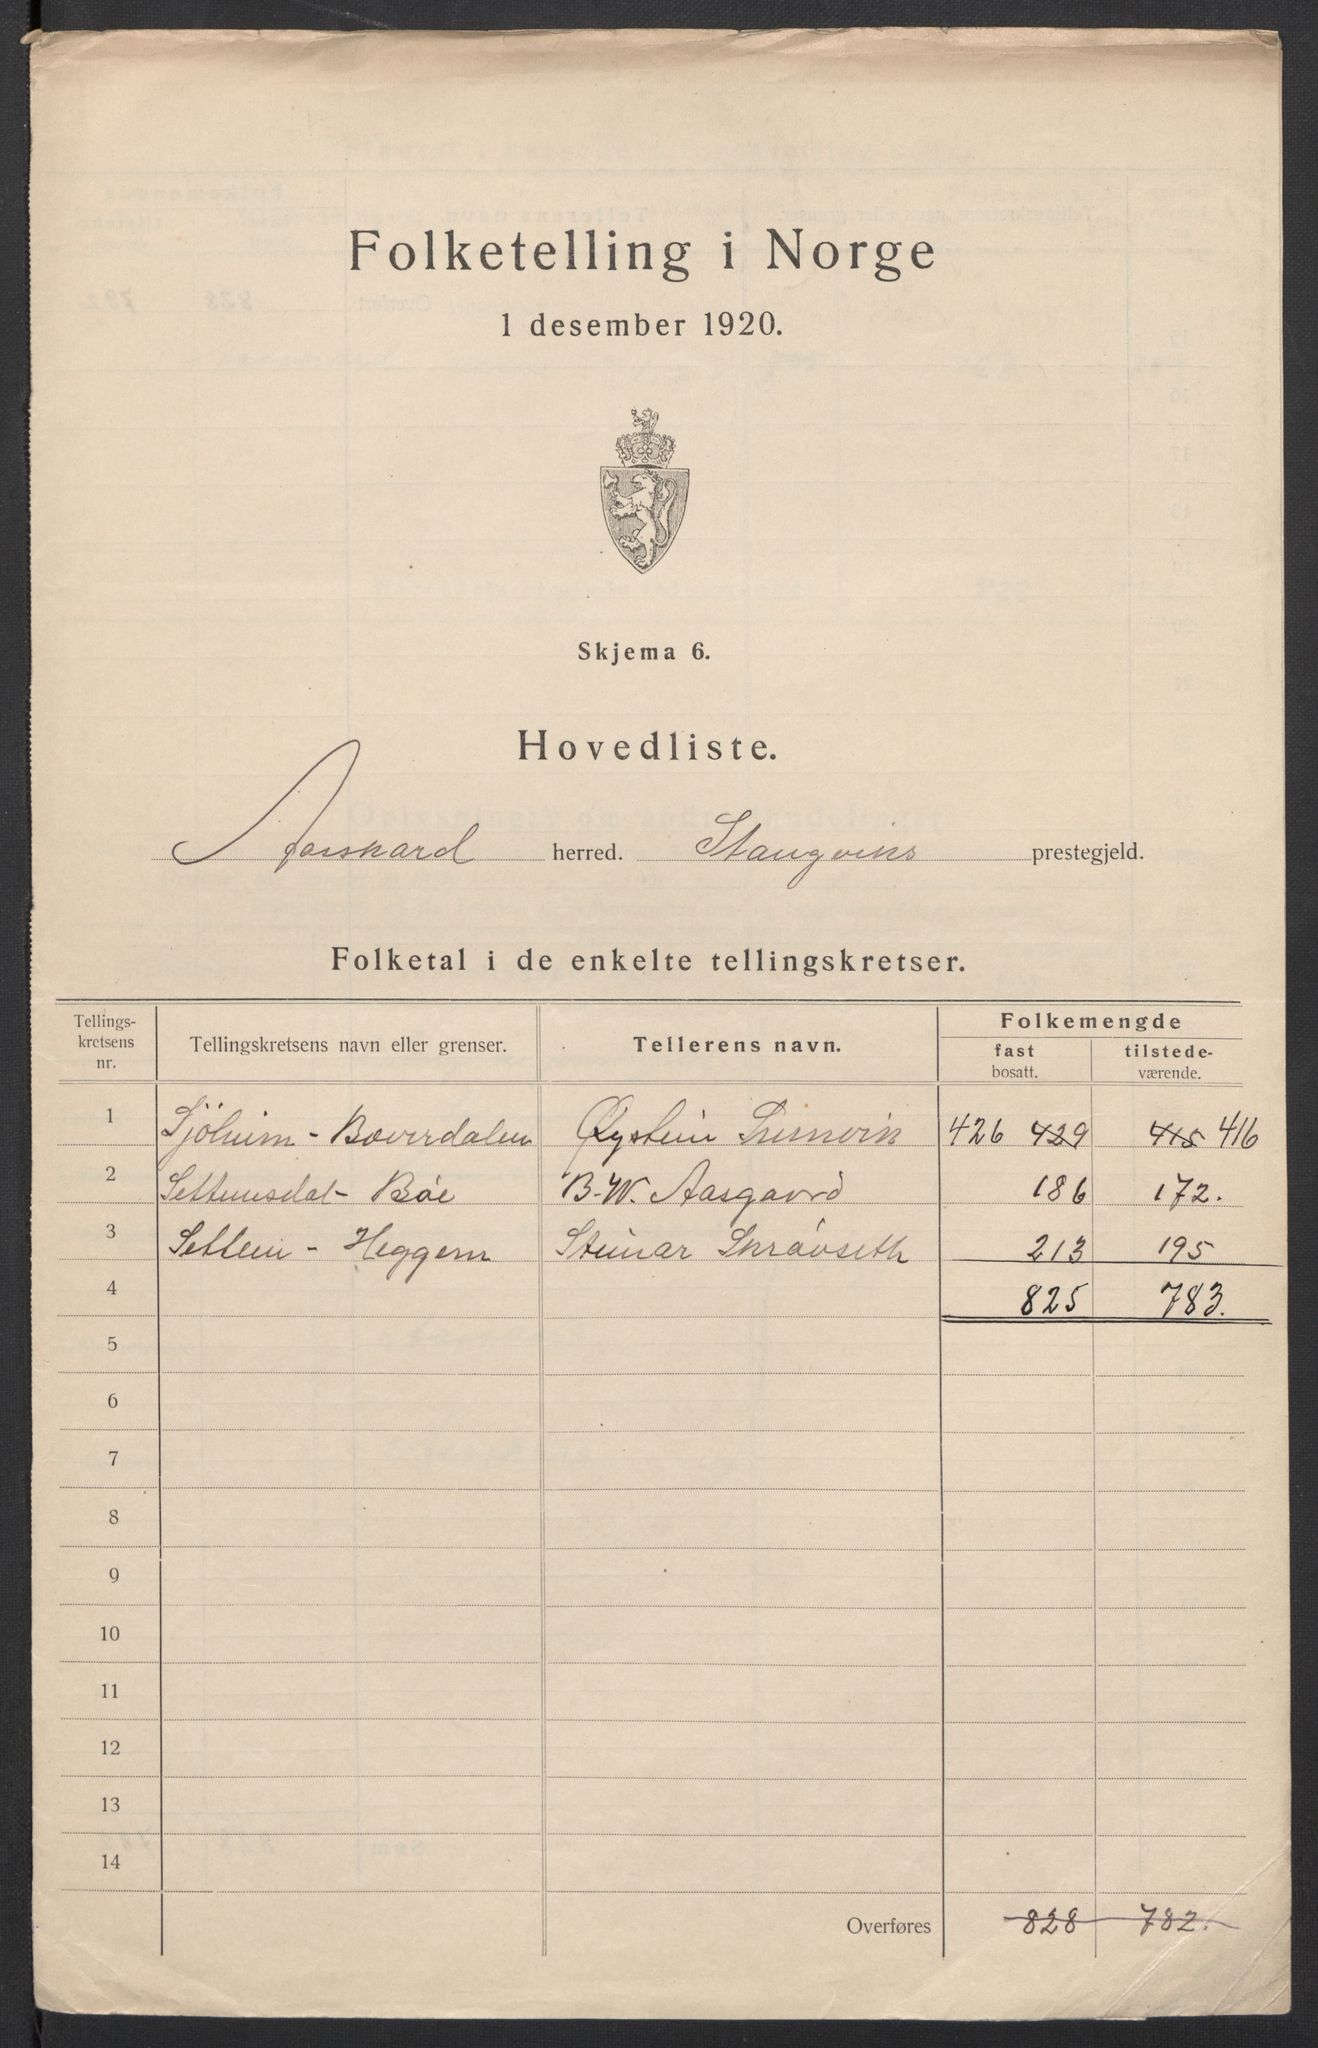 Folketelling i Norge
1 desember 1920.
Skjema 6.
Hovedliste.
Aasskard herred. Stangviks prestegjeld.
Folketal i de enkelte tellingskretser.
Tellings-
kretsens
nr.
Tellingskretsens navn eller grenser.
Tellerens navn.
Folkemengde
fast
bosatt.
tilstede-
værende.
1 Sjöheim - Bæverdalen Øystein 426 429 415 416
2 Settemsdal - Böe B. W. Aasgaard 186 172.
3 Settem - Heggem Steinar Skrövseth 213 195
4 825 783.
5
6
7
8
9
10
11
12
13
14
Overføres 828 782.